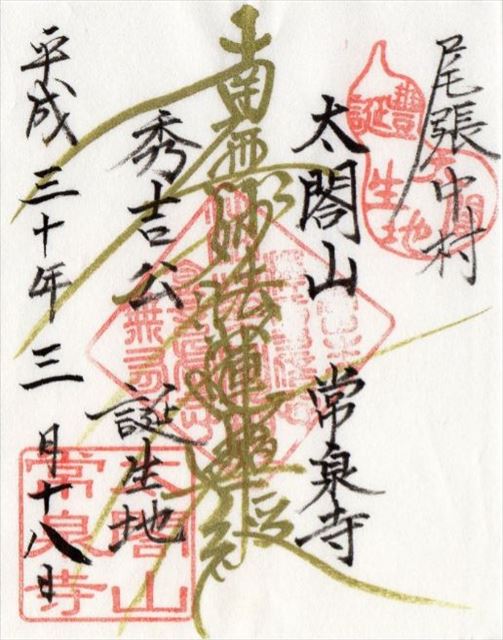 尾張中村
太閤山 常泉寺
南無妙法蓮華経
秀吉公 誕生地
平成三十年三月十八日
豊太閤
誕生地
太閤山
常泉寺